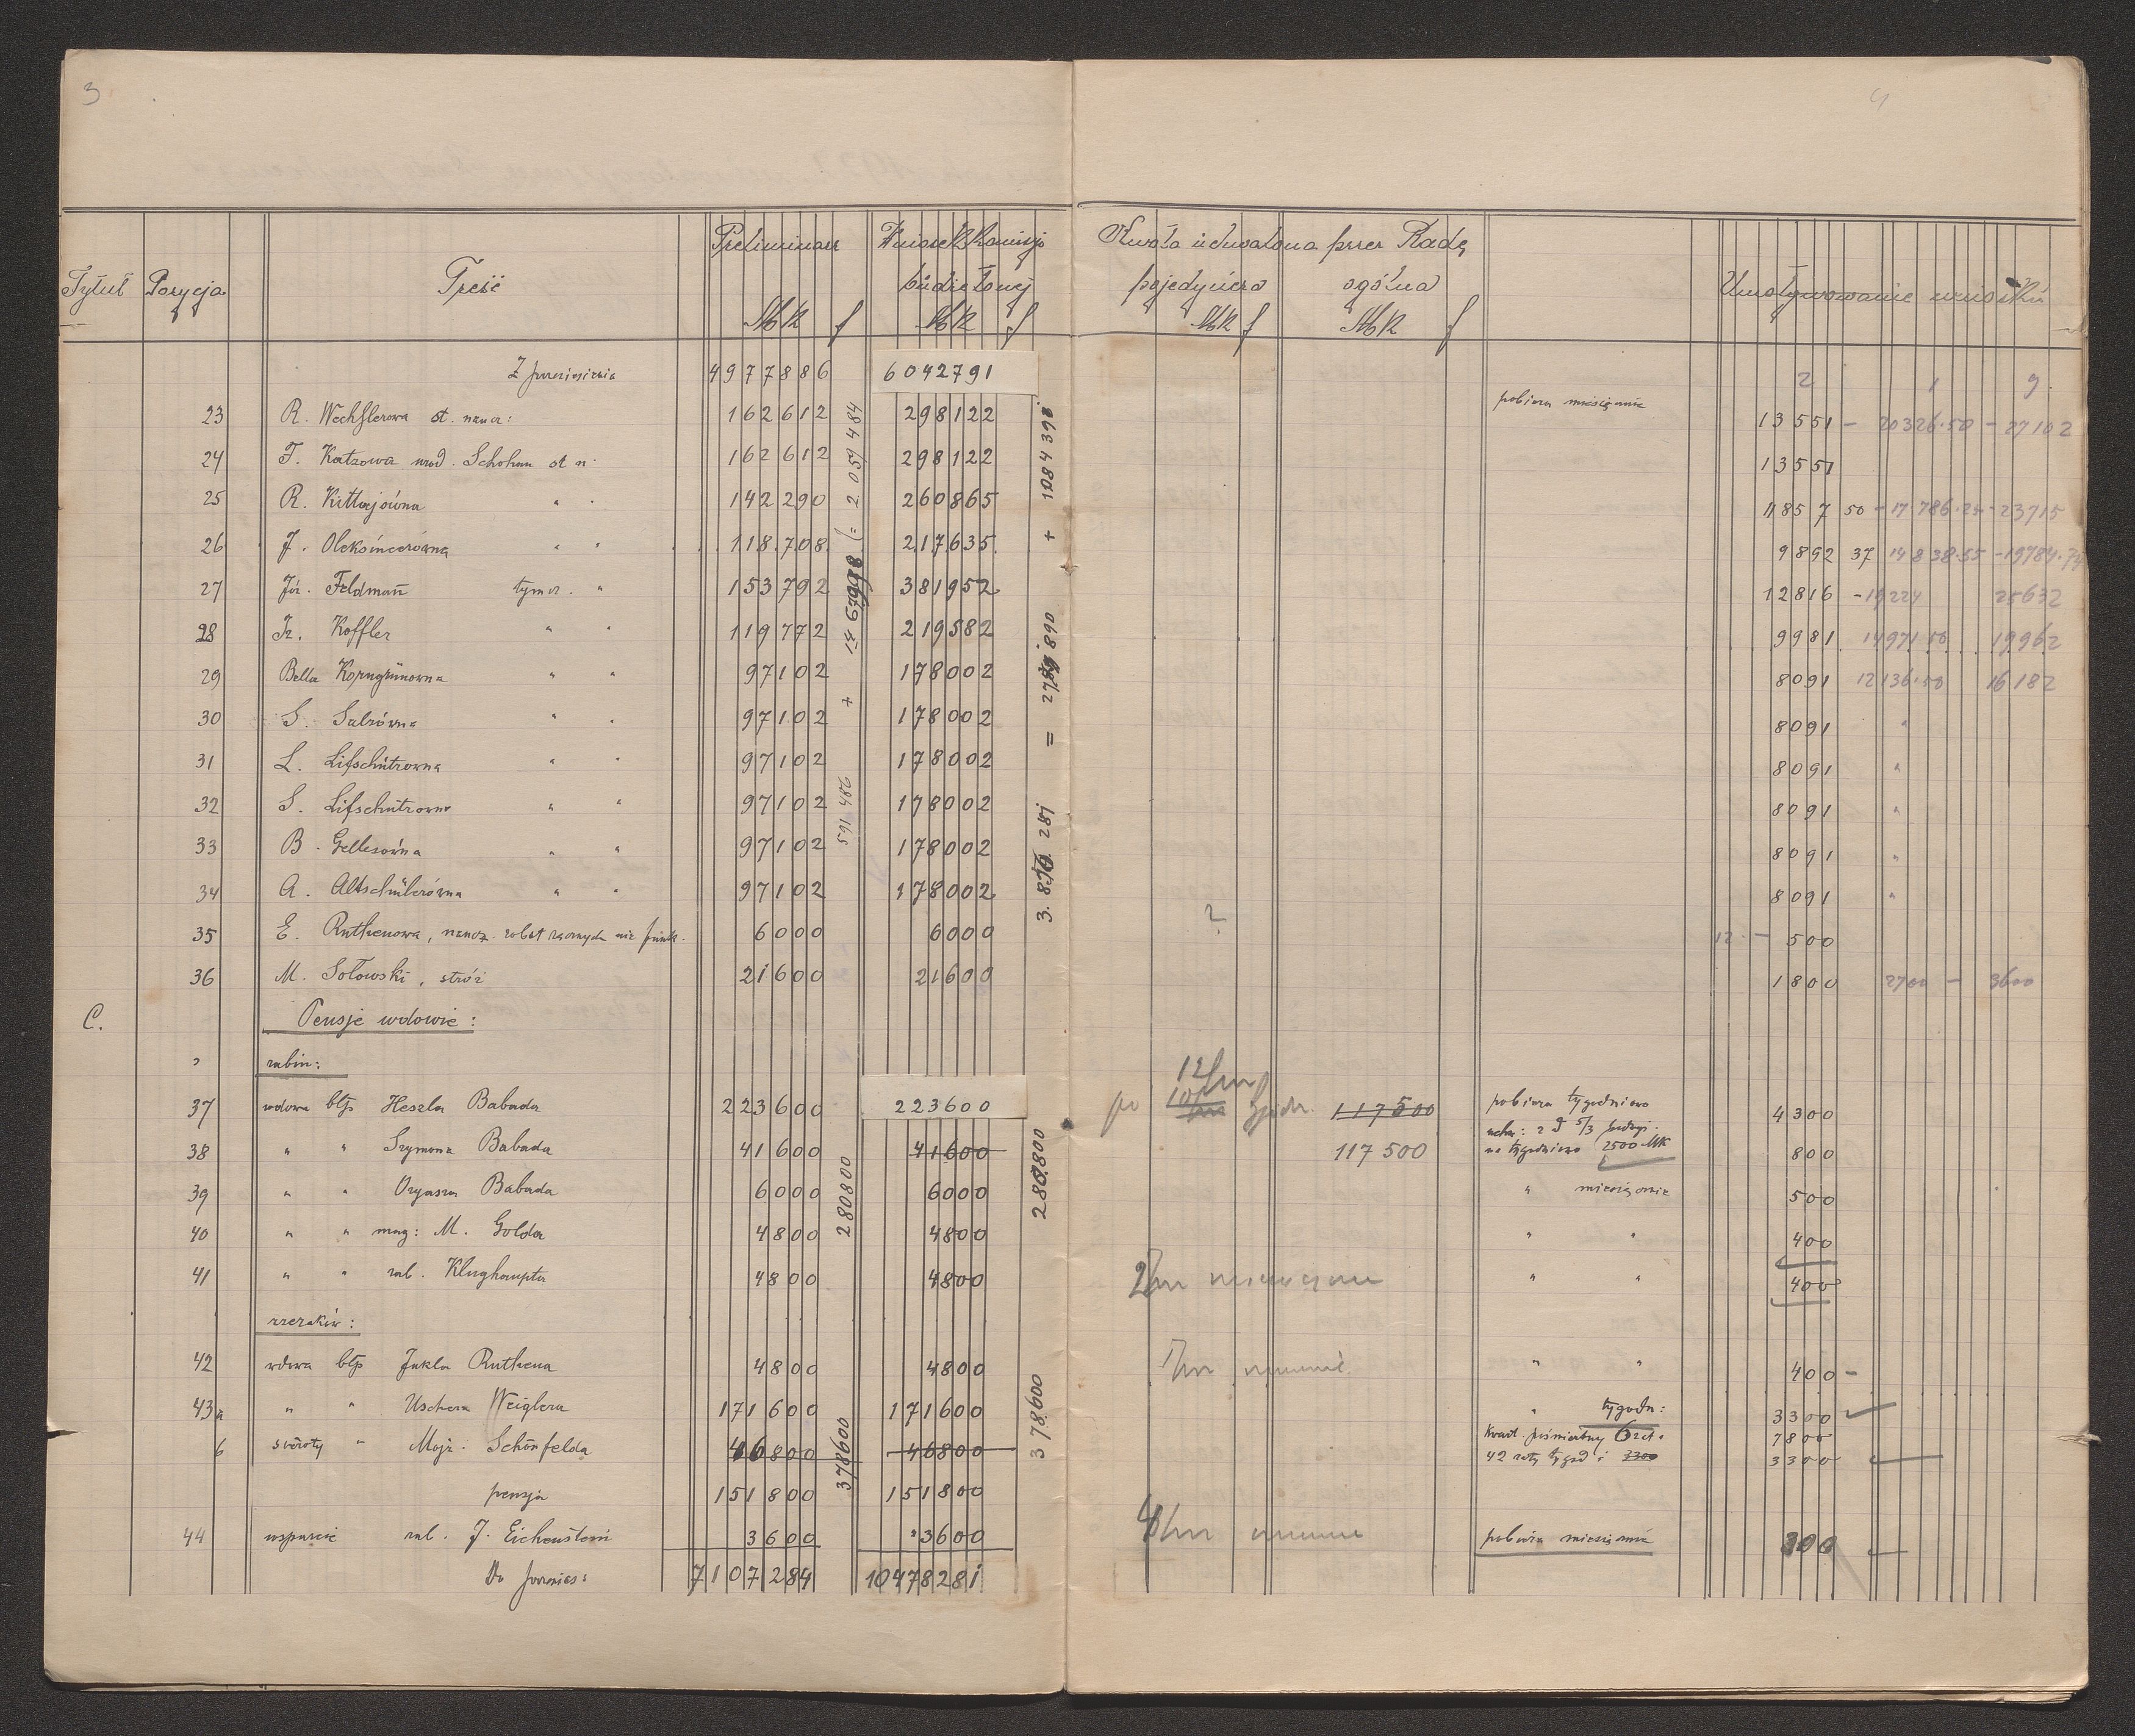 3
4
Preliminarz Wniosek Komisji Kwota uchwalona przez Radę
Tytuł Pozycja Treść budżetowej pojedyńcza ogólna Umotywowanie wniosku
Mk f Mk f Mk f Mk f
Z przeniesienia 4977886 6042791 2 1
23 R. Wechslerowa st. naucz: 162612 298122 pobiera miesięcznie 13551 - 20326.50 - 27102
24 F. Katzowa urod. Schohan st n. 162612 298122 13551
25 R. Kittajówna " " 142290 260865 11857 50 - 17786.25 - 23715
26 J. Oleksincerówna " " 118.708 217635 9892 37 14838.55 - 19784.74
27 Józ. Feldman tymcz. " 153792 381952 12816 - 19224 25632
28 Iz. Koffler " " 119772 219582 9981 14971.50 19962
29 Bella Korngrünowna " " 97102 178002 8091 12136.50 16182
30 S. Salzówna " " 97102 178002 8091 "
31 L. Lifschützowna " " 97102 178002 8091 "
32 S. Lifschützowna " " 97102 178002 8091 "
33 B. Gellesówna " " 97102 178002 8091 "
34 A. Altschülerówna " " 97102 178002 8091 "
35 E. Ruthenowa, naucz. robót ręcznych 6000 6000 ? 12 - 500
36 M. Sołowski, stróż 21600 21600 1800 2700 - 3600
591 486 + = 2 059 484
+ 1084398
C. Pensje wdowie:
rabin:
37 wdowa błp Heszla Babada 223600 223600 po 12/m 10/m 117500 pobiera tygodniowo 4300
38 " " Szymona Babada 41600 41600 117500 na tygodniowo 2500 Mk 800
39 " " Ozyasza Babada 6000 6000 " miesięcznie 500
40 " " mag: M. Golda 4800 4800 " " 400
41 " " rab. Klughaupta 4800 4800 2/m miesięcznie " " 400
280800 280.800
rzezaków:
42 wdowa błp Jukla Ruthena 4800 4800 " " 400 -
43a " " Uschera Weiglera 171600 171600 " tygodn: 3300
b sieroty " Majr. Schönfelda 46800 46800 kwart. pośmiertny 7800
42 raty tygod i 3300 3300
pensja 151800 151800
378600 378600
44 wsparcie rab. J. Eichensteini 3600 3600 pobiera miesięcznie 300
Do przenies: 7107284 10478281